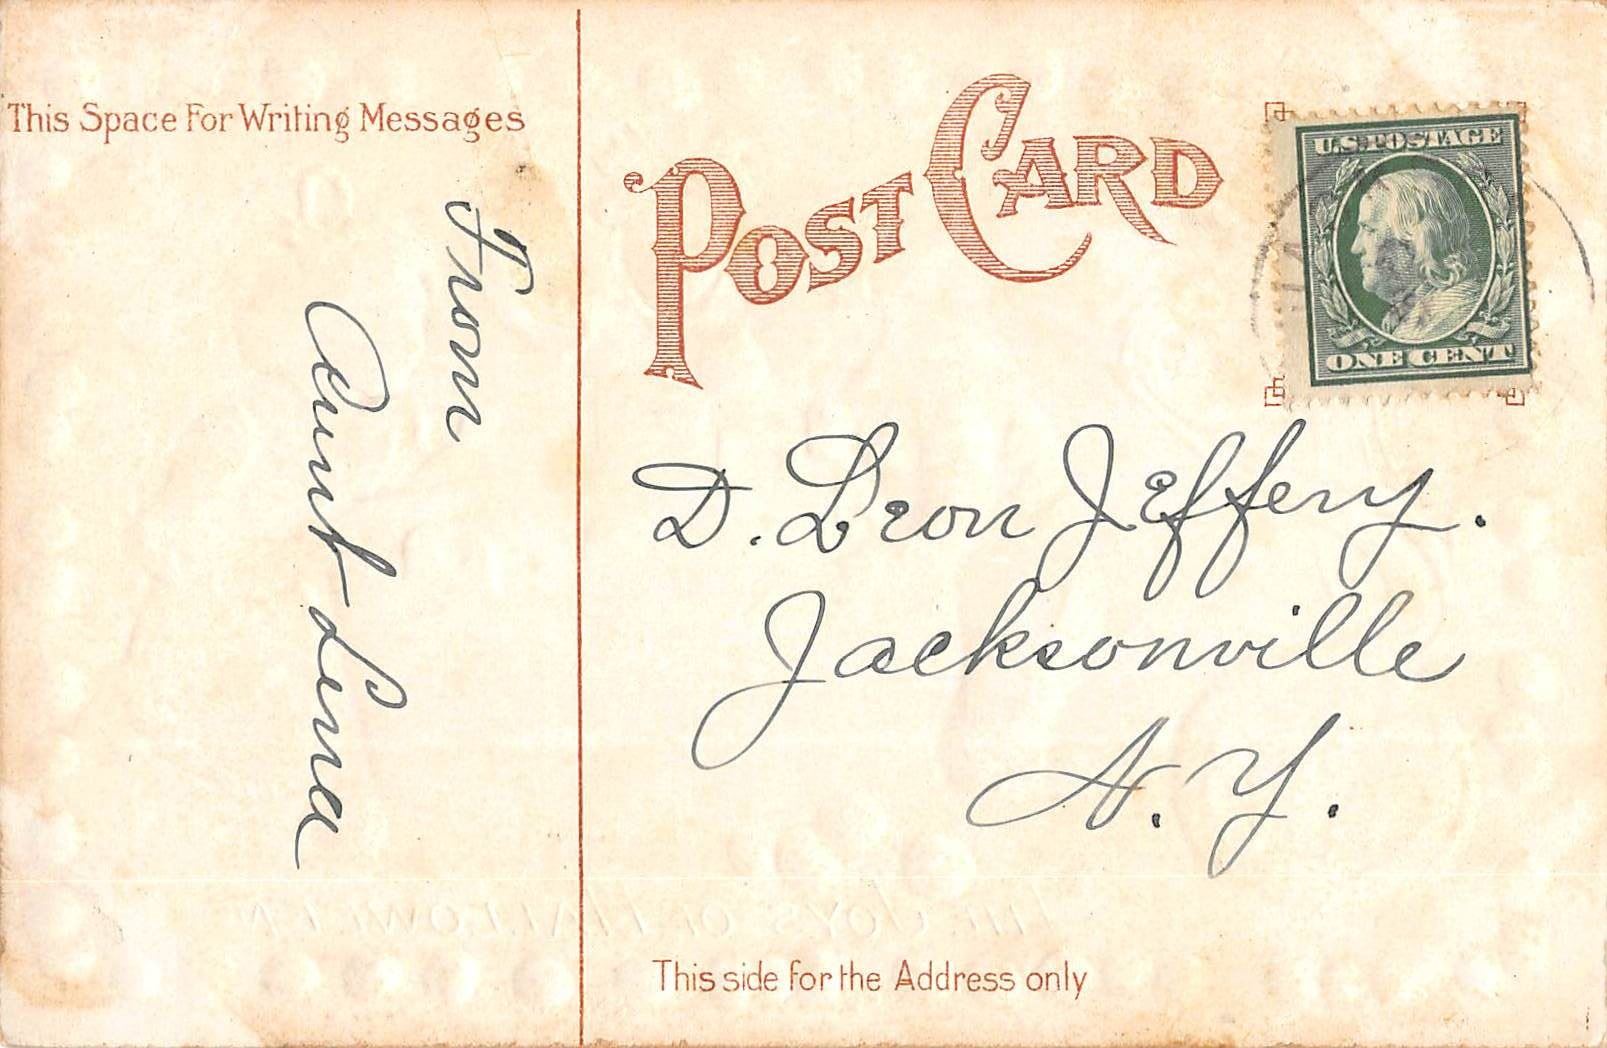 This Space For Writing Messages
From
Aunt Lena
POST CARD
U.S. POSTAGE
ONE CENT
D. Leon Jeffery.
Jacksonville
N. Y.
THE JOYS OF HALLOWE'EN
This side for the Address only